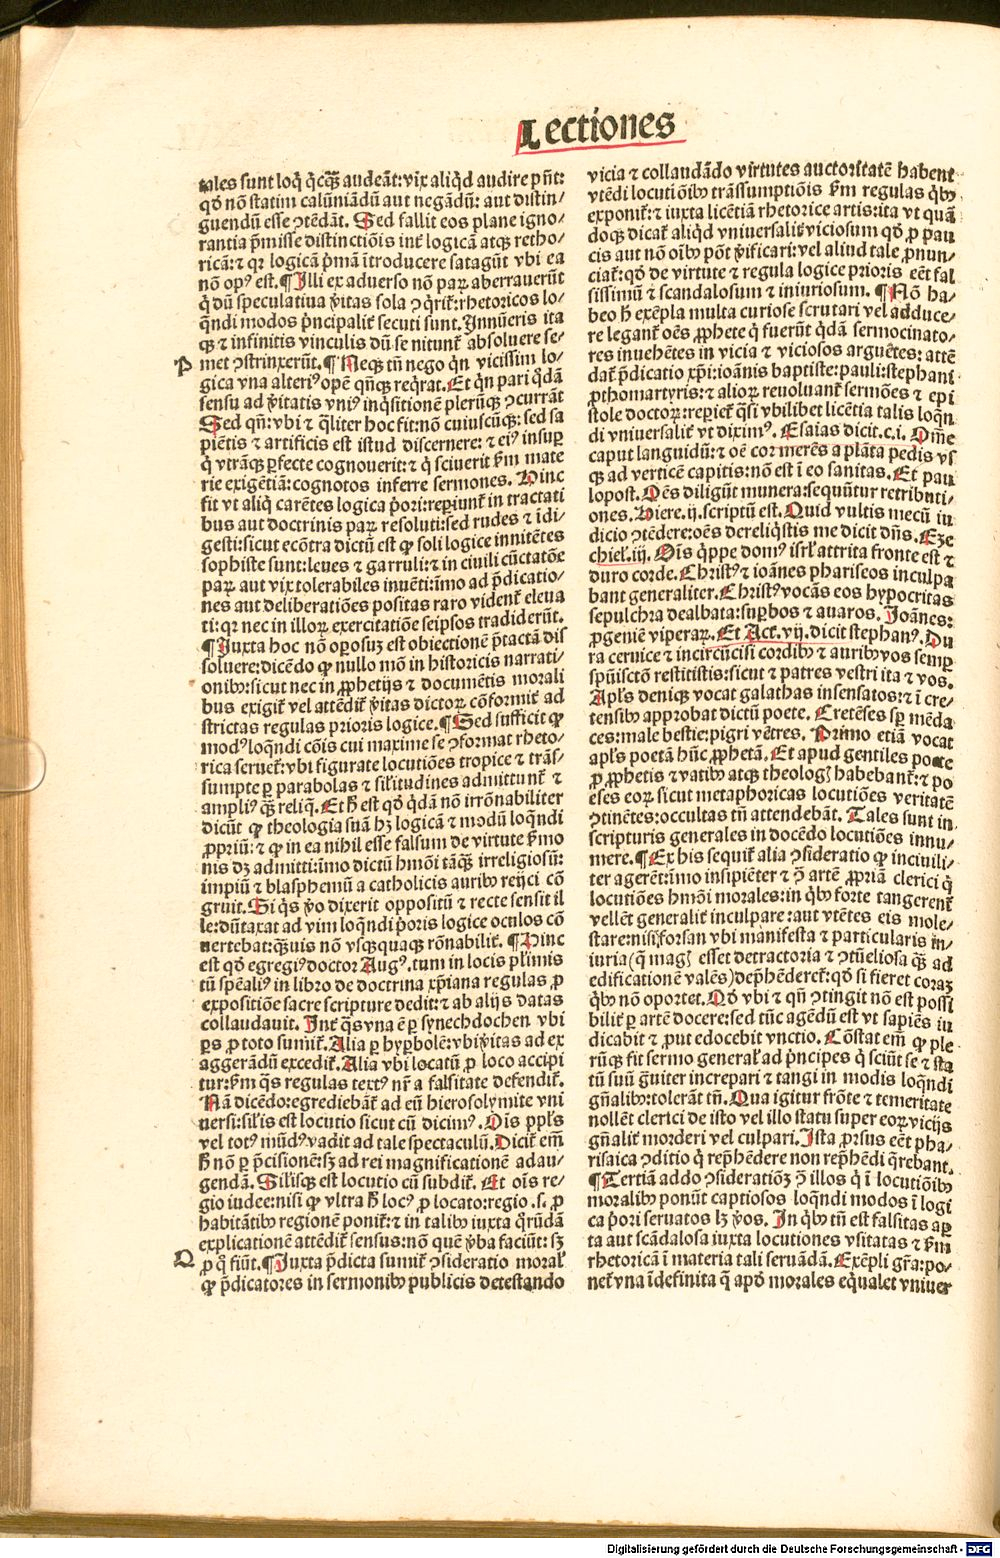 Lectiones
tales sunt loq̄ q̄cq̄ꝫ audeāt: vix aliq̄d audire pn̄t:
qd̄ nō statim calūniādū aut negādū: aut distin-
guendū esse ꝯtēdāt. Sed fallit eos plane igno/
rantia p̄misse distinctiōis int̄ logicā atqꝫ retho/
ricā: ⁊ qꝛ logicā p̄mā ītroducere satagūt vbi ea
nō opꝰ est. ¶ Illi ex aduerso nō paꝝ aberrauerūt
q̄ dū speculatiua v̄itas sola ꝯq̄rit̄: rhetoricos lo/
q̄ndi modos p̄ncipalit̄ secuti sunt. Innūeris ita
qꝫ ⁊ infinitis vinculis dū se nitunt̄ absoluere se-
P
met ꝯstrinxerūt. ¶ Neqꝫ tn̄ nego q̄n vicissim lo/
gica vna alteriꝰ opē qn̄qꝫ req̄rat. Et q̄n pari q̄dā
sensu ad v̄itatis vniꝰ inq̄sitionē plerūqꝫ ꝯcurrāt
Sed qn̄: vbi ⁊ q̄liter hoc fit: nō cuiuscūqꝫ: sed sa
piētis ⁊ artificis est istud discernere: ⁊ eiꝰ insuꝑ
q̄ vtrāqꝫ ꝑfecte cognouerit: ⁊ q̄ sciuerit ẜm mate
rie exigētiā: cognotos inferre sermones. Hinc
fit vt aliq̄ carētes logica p̄ori: reꝑiunt̄ in tractati
bus aut doctrinis paꝝ resoluti: sed rudes ⁊ īdi-
gesti: sicut ecōtra dictū est ꝙ soli logice innitētes
sophiste sunt: leues ⁊ garruli: ⁊ in ciuili cūctatōe
paꝝ aut vix tolerabiles inuēti: īmo ad p̄dicatio/
nes aut deliberatiōes positas raro vident̄ eleua
ti: qꝛ nec in illoꝝ exercitatiōe seipsos tradiderūt.
¶ Iuxta hoc nō oꝑosuꝫ est obiectionē p̄tactā dis
soluere: dicēdo ꝙ nullo mō in historicis narrati-
onibꝰ: sicut nec in ꝓphetijs ⁊ documētis morali
bus exigit̄ vel attēdit̄ v̄itas dictoꝝ cōformit̄ ad
strictas regulas prioris logice. ¶ Sed sufficit ꝙ
modꝰ loq̄ndi cōis cui maxime se ꝯformat rheto-
rica seruet̄: vbi figurate locutiōes tropice ⁊ trās/
sumpte ꝑ parabolas ⁊ silitudines admittunt̄ ⁊
ampliꝰ q̄ꝫ reliq̄. Et h̄ est qd̄ q̄dā nō irrōnabiliter
dicūt ꝙ theologia suā hꝫ logicā ⁊ modū loq̄ndi
ꝓpriū: ⁊ ꝙ in ea nihil esse falsum de virtute ẜmo
nis dꝫ admitti: īmo dictū hmōi tāq̄ꝫ irreligiosū:
impiū ⁊ blasphemū a catholicis auribꝰ reijci cō
gruit. Si q̄s v̄o dixerit oppositū ⁊ recte sensit il
le: dūtaxat ad vim loq̄ndi p̄oris logice oculos cō
uertebat: q̄ꝫuis nō vsq̄quaqꝫ rōnabilit̄. ¶ Hinc
est qd̄ egregiꝰ doctor Augꝰ. tum in locis pl̄imis
tū spēaliꝰ in libro de doctrina xp̄iana regulas ꝓ
expositiōe sacre scripture dedit: ⁊ ab alijs datas
collaudauit. Int̄ q̄s vna ē ꝑ synechdochen vbi
ꝑs ꝓ toto sumit̄. Alia ꝑ hyꝑbolē: vbi v̄itas ad ex
aggerādū excedit̄. Alia vbi locatū ꝓ loco accipi
tur: ẜm q̄s regulas textꝰ nr̄a a falsitate defendit̄.
Nā dicēdo: egrediebāt̄ ad eū hierosolymite vni
uersi: sil̄is est locutio sicut cū dicimꝰ. Ois ppl̄s
vel totꝰ mūdꝰ vadit ad tale spectaculū. Dicit̄ em̄
h̄ nō ꝑ p̄cisionē: sꝫ ad rei magnificationē adau-
gendā. Sil̄isqꝫ est locutio cū subdit̄. Et oīs re-
gio iudee: nisi ꝙ vltra h̄ locꝰ ꝓ locato: regio .s. ꝓ
habitātibꝰ regionē ponit̄: ⁊ in talibꝰ iuxta q̄rūdā
explicationē attēdit̄ sensus: nō quē v̄ba faciūt: sꝫ
Q
ꝓ q̄ fiūt. ¶ Iuxta p̄dicta sumit̄ ꝯsideratio moral̄
ꝙ p̄dicatores in sermonibꝰ publicis detestando
vicia ⁊ collaudādo virtutes auctoritatē habent
vtēdi locutiōibꝰ trāssumptiōis ẜm regulas q̄bꝰ
exponit̄: ⁊ iuxta licētiā rhetorice artis: ita vt quā
doqꝫ dicat̄ aliq̄d vniuersalit̄ viciosum qd̄ ꝓ pau
cis aut nō oībꝰ pōt v̄ificari: vel aliud tale ꝓnun/
ciat̄: qd̄ de virtute ⁊ regula logice prioris eēt fal
sissimū ⁊ scandalosum ⁊ iniuriosum. ¶ Nō ha/
beo h̄ exēpla multa curiose scrutari vel adduce-
re legant̄ oēs ꝓphete q̄ fuerūt q̄dā sermocinato/
res inuehētes in vicia ⁊ viciosos arguētes: attē
dat̄ p̄dicatio xp̄i: ioānis baptiste: pauli: stephani
ꝓthomartyris: ⁊ alioꝝ reuoluant̄ sermōes ⁊ epi
stole doctoꝝ: reꝑiet̄ q̄si vbilibet licētia talis loq̄n
di vniuersalit̄ vt diximꝰ. Esaias dicit.c.i. Om̄e
caput languidū: ⁊ oē cor merēs a plāta pedis vs
qꝫ ad verticē capitis: nō est ī eo sanitas. Et pau
lopost. Oēs diligūt munera: sequūtur retributi/
ones. Hiere. ij. scriptū est. Quid vultis mecū iu
dicio ꝯtēdere: oēs dereliq̄stis me dicit dn̄s. Eze
chiel̄. iij. Oīs q̄ppe domꝰ isrl̄ attrita fronte est ⁊
duro corde. Christꝰ ⁊ ioānes phariseos inculpa
bant generaliter. Christꝰ vocās eos hypocritas
sepulchra dealbata: suꝑbos ⁊ auaros. Joānes:
ꝓgeniē viperaꝝ. Et Act. vij. dicit stephanꝰ. Du
ra ceruice ⁊ incircūcisi cordibꝰ ⁊ auribꝰ vos semꝑ
spūiscto restitistis: sicut ⁊ patres vestri ita ⁊ vos.
Apl̄s deniqꝫ vocat galathas insensatos: ⁊ ī cre-
tensibꝰ approbat dictū poete. Cretēses sꝑ mēda
ces: male bestie: pigri vētres. Primo etiā vocat
apl̄s poetā hūc ꝓphetā. Et apud gentiles poete
ꝓ ꝓphetis ⁊ vatibꝰ atqꝫ theologꝫ habebant̄: ⁊ po
eses eoꝝ sicut metaphoricas locutiōes veritatē
ꝯtinētes: occultas tn̄ attendebāt. Tales sunt in
scripturis generales in docēdo locutiōes innu/
mere. ¶ Ex his sequit̄ alia ꝯsideratio ꝙ inciuili/
ter agerēt: īmo insipiēter ⁊ ꝯ̄ artē ꝓpriā clerici q̄
locutiōes hmōi morales: in q̄bꝰ forte tangerent̄
vellēt generalit̄ inculpare: aut vtētes eis mole/
stare: nisi forsan vbi manifesta ⁊ particularis in/
iuria (q̄ magꝫ esset detractoria ⁊ ꝯtūeliosa q̄ꝫ ad
edificationē valēs) dep̄hēderet̄: qd̄ si fieret coraꝫ
q̄bꝰ nō oportet. Qd̄ vbi ⁊ qn̄ ꝯtingit nō est possi
bilit̄ ꝑ artē docere: sed tūc agēdū est vt sapiēs iu
dicabit ⁊ ꝓut edocebit vnctio. Cōstat em̄ ꝙ ple
rūqꝫ fit sermo general̄ ad p̄ncipes q̄ sciūt se ⁊ sta
tū suū ḡuiter increpari ⁊ tangi in modis loq̄ndi
gn̄alibꝰ: tolerāt tn̄. Qua igitur frōte ⁊ temeritate
nollēt clerici de isto vel illo statu super eoꝝ vicijs
gn̄alit̄ morderi vel culpari. Ista ꝓrsus eēt pha/
risaica ꝯditio q̄ rep̄hēdere non rep̄hēdi q̄rebant.
¶ Tertiā addo ꝯsideratiōꝫ ꝯ̄ illos q̄ ī locutiōibꝰ
moralibꝰ ponūt captiosos loq̄ndi modos ī logi
ca p̄ori seruatos lꝫ v̄os. In q̄bꝰ tn̄ est falsitas aꝑ
ta aut scādalosa iuxta locutiones vsitatas ⁊ ẜm
rhetoricā ī materia tali seruādā. Exēpli gr̄a: po/
net̄ vna īdefinita q̄ apd̄ morales eq̄ualet vniuer